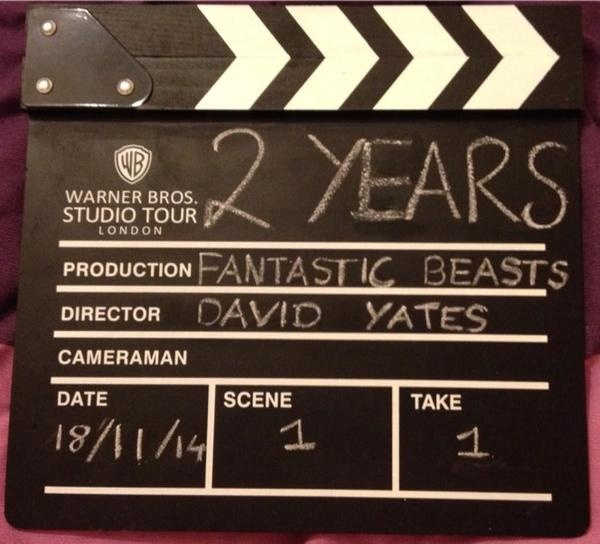 WB
2 YEARS
WARNER BROS.
STUDIO TOUR
LONDON
PRODUCTION FANTASTIC BEASTS
DIRECTOR DAVID YATES
CAMERAMAN
DATE SCENE TAKE
18/11/14 1 1